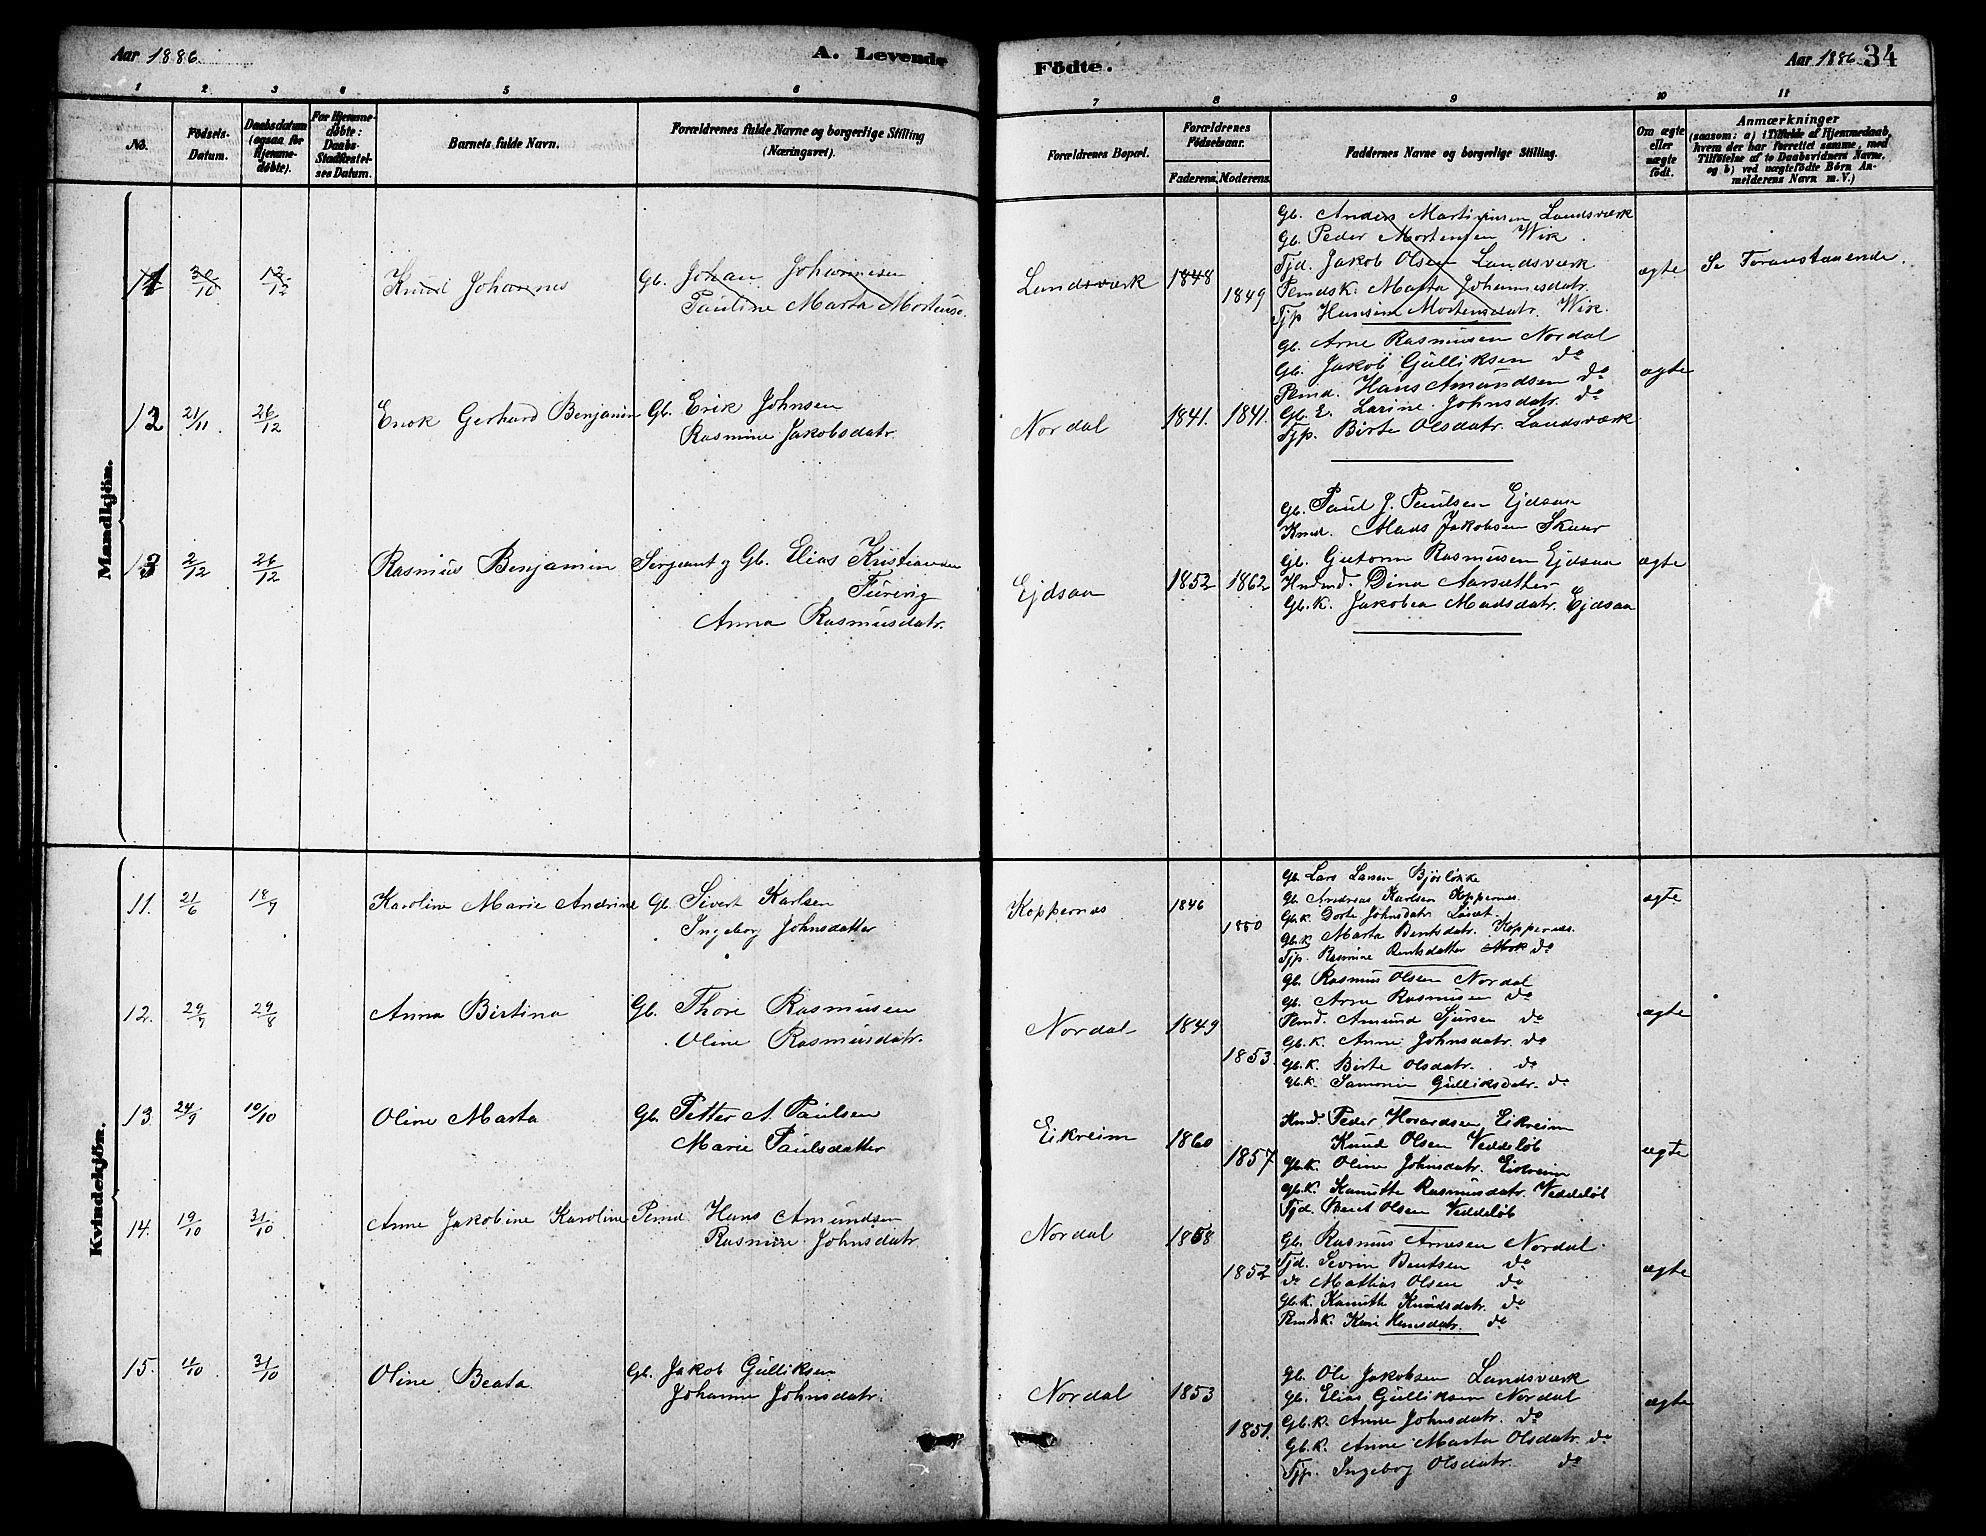 Aar 1886.
A. Levende
Födte.
Aar 1886
34
1 2 3 4 5 6 7 8 9 10 11
No.
Födsels-
Datum.
Daabsdatum
(ogsaa for
Hjemme-
døbte).
For Hjemme-
døbte:
Daabs-
Stadfæstel-
ses Datum.
Barnets fulde Navn.
Forældrenes fulde Navne og borgerlige Stilling
(Næringsvei).
Forældrenes Bopæl.
Forældrenes
Födselsaar.
Faderens. Moderens.
Faddernes Navne og borgerlige Stilling.
Om ægte
eller
uægte
födt.
Anmærkninger
(saasom: a) i Tilfælde af Hjemmedaab,
hvem der har forrettet samme, med
Tilföielse af to Daabsvidners Navne,
og b) ved uægtefödte Börn An-
melderens Navn m. V.)
Mandkjön.
30/10 12/12 Knud Johannes
Gb. Johan Johannesen
Pauline Marta Mortensd.
Landsværk 1848 1849
Gb. Anders Martinusen Landsværk
Gb. Peder Mortensen Wik.
Tjd. Jakob Olsen Landsværk
Pemdsk. Marta Johannesdatr.
Tjp Hansine Mortensdatr. Wik.
ægte
Se Foranstaaende.
12 21/11 26/12 Enok Gerhard Benjamin
Gb. Erik Johnsen
Rasmine Jakobsdatr.
Nordal 1841. 1841.
Gb. Arne Rasmusen Nordal
Gb. Jakob Gulliksen do
Pemd. Hans Amundsen do
Gb. E. Larine Johnsdatr. do
Tjp. Birte Olsdatr. Landsværk
ægte
13 2/12 26/12 Rasmus Benjamin
Sergeant og Gb. Elias Kristiansen
Furevig
Anna Rasmusdatr.
Ejdsaa 1852 1862
Gb. Paul J. Paulsen Ejdsaa
Kmd. Mads Jakobsen Skaar
Gb. Gutorm Rasmusen Ejdsaa
Dina Aarsæther
Gb. K. Jakobea Madsdatr. Ejdsaa
ægte
Kvindekjön.
11. 21/6 18/9 Karoline Marie Andrine
Gb. Sivert Karlsen
Ingeborg Johnsdatter
Koppernæs 1846 1850
Gb. Lars Larsen Bjørløkke
Gb. Andreas Karlsen Koppernæs.
Gb.K. Dorte Johnsdatr.
Gb.K. Marta Bentsdatr. Koppernæs.
Tjp. Rasmine Bentsdatter do
ægte
12. 29/7 29/8 Anna Birtina
Gb. Thore Rasmusen
Oline Rasmusdatr.
Nordal 1849 1853.
Gb. Rasmus Olsen Nordal
Gb. Arne Rasmusen do
Pemd. Amund Sjursen do
Gb.K. Anne Johnsdatr. do
Gb.K. Birte Olsdatr. do
Gb.K. Gulliksdatr. do
ægte
13. 24/9 10/10 Oline Marta
Gb. Petter A Paulsen
Marie Paulsdatter
Eikreim 1860 1857
Kmd. Peder Hovardsen Eikreim
Knud Olsen Veddeløb
Gb.K. Oline Johnsdatr. Eikreim
Gb.K. Kanutte Rasmusdatr. Veddeløb
Tjd. Berit Olsen Veddeløb
ægte
14. 19/10 31/10 Anne Jakobine Karoline
Pemd Hans Amundsen
Rasmine Johnsdatr.
Nordal 1858 1852
Gb. Rasmus Arnesen Nordal.
Tjd. Sevrin Bentsen do
do Mathias Olsen do
Gb.K. Kanutte Knudsdatr. do
Pemdsk. Kari Hansdatr. do
ægte
15. 31/10 Oline Beata.
Gb. Jakob Gulliksen
Johanne Johnsdatr.
Nordal 1853 1851.
Gb. Ole Jakobsen Landsværk
Gb. Elias Gulliksen Nordal
Gb.K. Anne Johnsdatr. do
Gb.K. Anne Marta Olsdatr. do
Tjp. Ingeborg Olsdatr. do
ægte